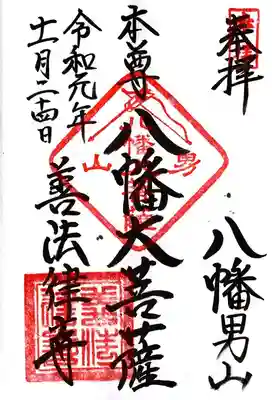 奉拝
八幡男山
本尊 八幡大菩薩
令和元年
十一月二十四日
善法律寺